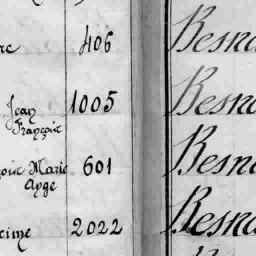 406 Besna
Jean 1005 Besna
François
Marie 601 Besna
Ange
2022 Besna